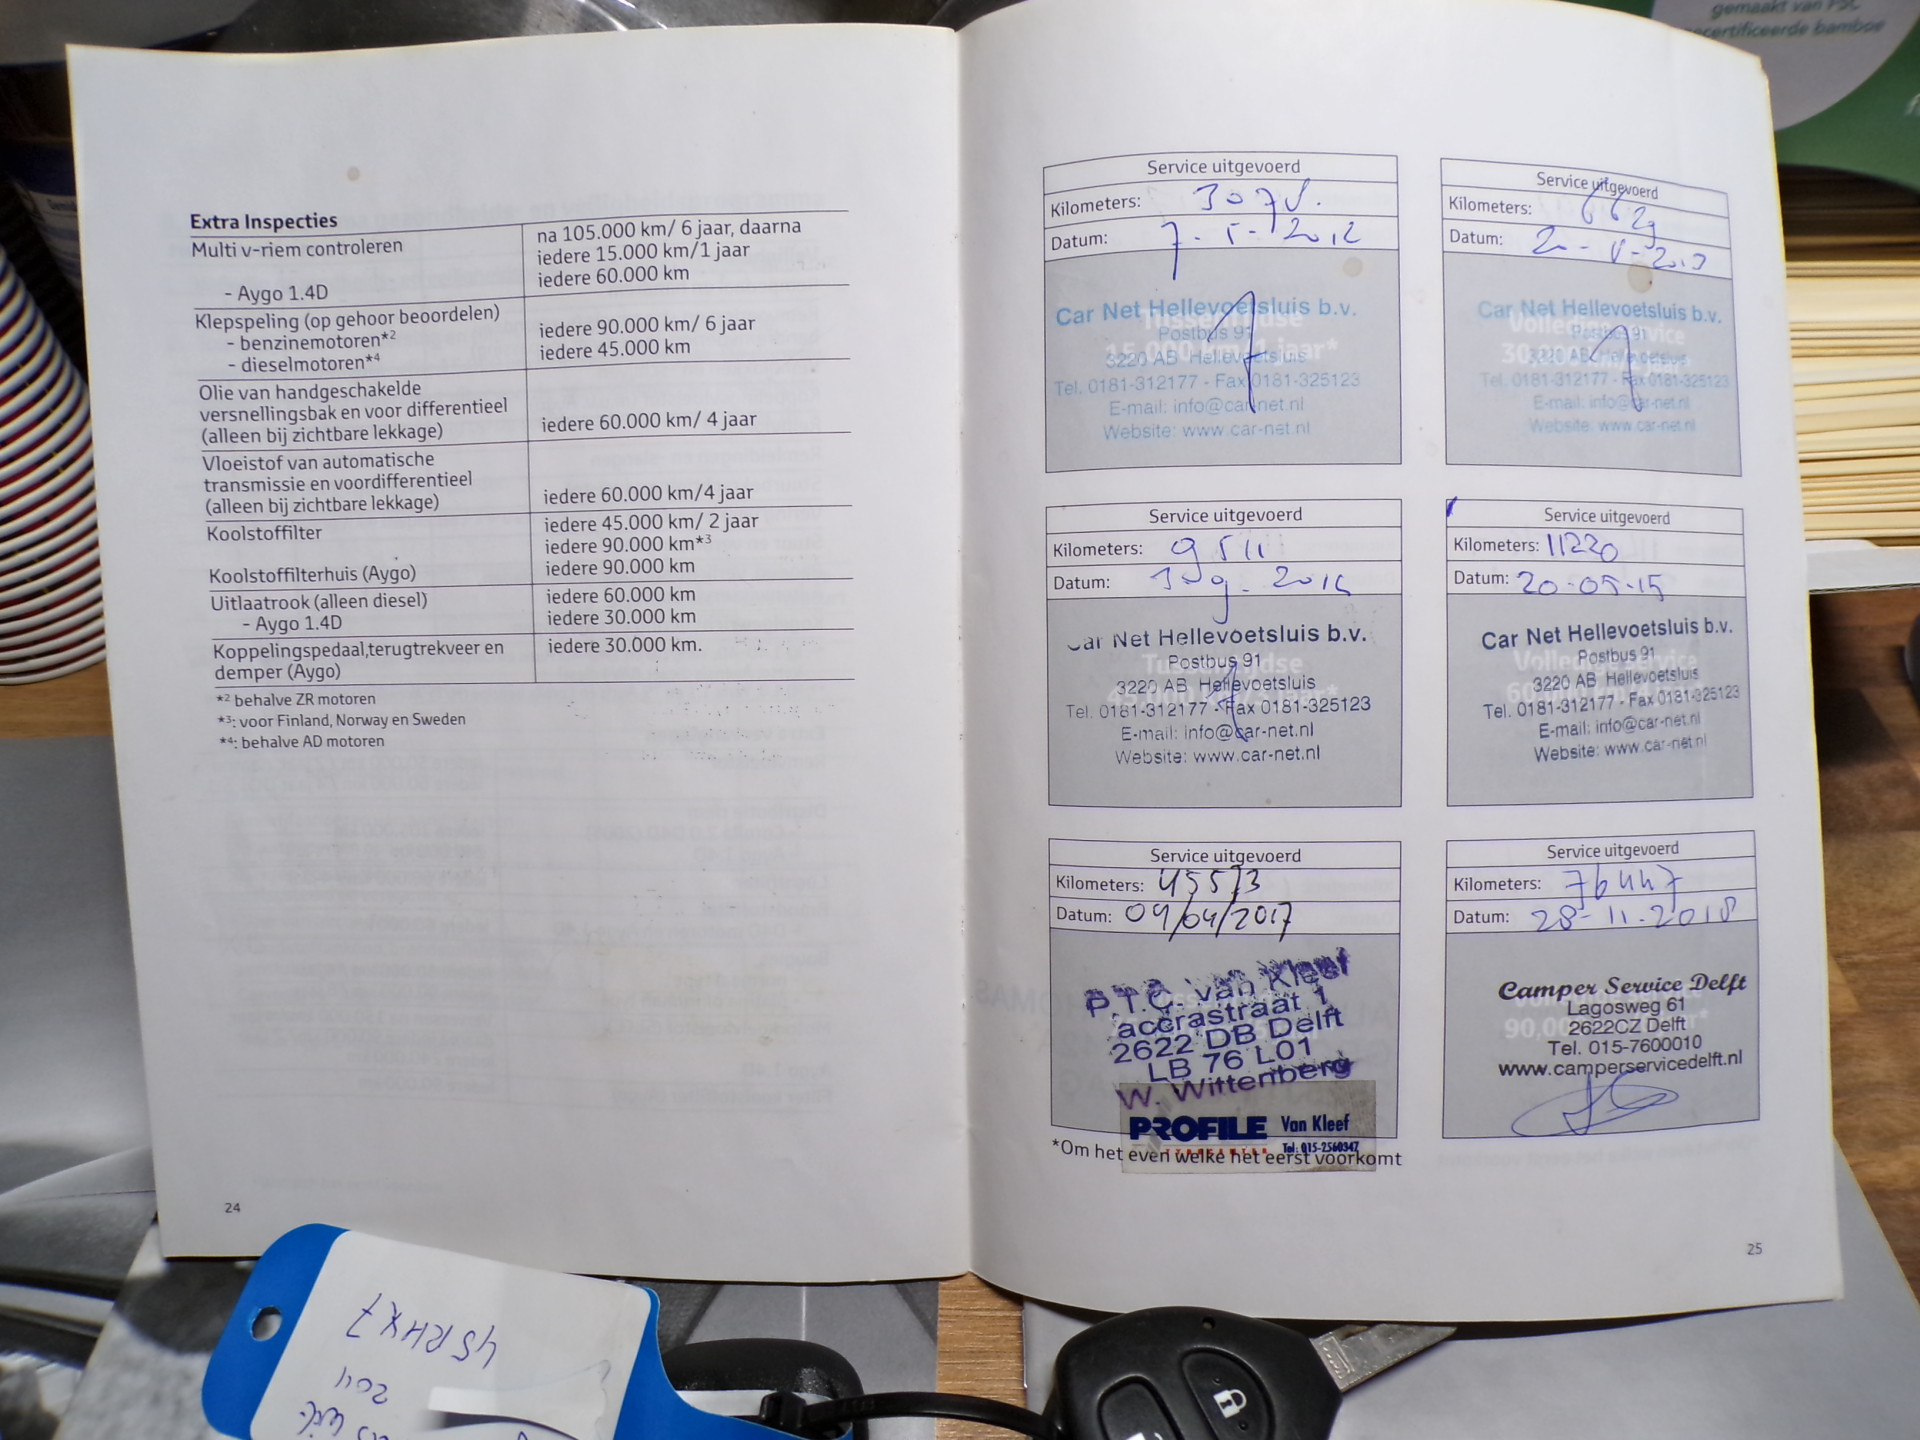 gemaakt van FSC
gecertificeerde bamboe
Extra Inspecties
Multi v-riem controleren
na 105.000 km/ 6 jaar, daarna
iedere 15.000 km/1 jaar
- Aygo 1.4D
iedere 60.000 km
Klepspeling (op gehoor beoordelen)
- benzinemotoren*2
iedere 90.000 km/ 6 jaar
- dieselmotoren*4
iedere 45.000 km
Olie van handgeschakelde
versnellingsbak en voor differentieel
(alleen bij zichtbare lekkage)
iedere 60.000 km/ 4 jaar
Vloeistof van automatische
transmissie en voordifferentieel
(alleen bij zichtbare lekkage)
iedere 60.000 km/4 jaar
Koolstoffilter
iedere 45.000 km/ 2 jaar
iedere 90.000 km*3
Koolstoffilterhuis (Aygo)
iedere 90.000 km
Uitlaatrook (alleen diesel)
iedere 60.000 km
- Aygo 1.4D
iedere 30.000 km
Koppelingspedaal,terugtrekveer en
demper (Aygo)
iedere 30.000 km.
*2 behalve ZR motoren
*3: voor Finland, Norway en Sweden
*4: behalve AD motoren
24
Service uitgevoerd
Kilometers:
Datum: 7-5-2012
Car Net Hellevoetsluis b.v.
Postbus 91
3220 AB Hellevoetsluis
Tel. 0181-312177 - Fax 0181-325123
E-mail: info@car-net.nl
Website: www.car-net.nl
Service uitgevoerd
Kilometers: 6629
Datum:
Car Net Hellevoetsluis b.v.
Postbus 91
3220 AB Hellevoetsluis
Tel. 0181-312177 - Fax 0181-325123
E-mail: info@car-net.nl
Website: www.car-net.nl
Service uitgevoerd
Kilometers: 9511
Datum:
Car Net Hellevoetsluis b.v.
Postbus 91
3220 AB Hellevoetsluis
Tel. 0181-312177 - Fax 0181-325123
E-mail: info@car-net.nl
Website: www.car-net.nl
Service uitgevoerd
Kilometers: 11220
Datum: 20-05-15
Car Net Hellevoetsluis b.v.
Postbus 91
3220 AB Hellevoetsluis
Tel. 0181-312177 - Fax 0181-325123
E-mail: info@car-net.nl
Website: www.car-net.nl
Service uitgevoerd
Kilometers: 45573
Datum: 04/04/2017
P.T.C. van Kleef
accrastraat 1
2622 DB Delft
LB 76 L01
W. Wittenberg
PROFILE Van Kleef
Tel: 015-2560347
*Om het even welke het eerst voorkomt
Service uitgevoerd
Kilometers: 76447
Datum: 28-11-2018
Camper Service Delft
Lagosweg 61
2622CZ Delft
Tel. 015-7600010
www.camperservicedelft.nl
25
45RHX7
2011